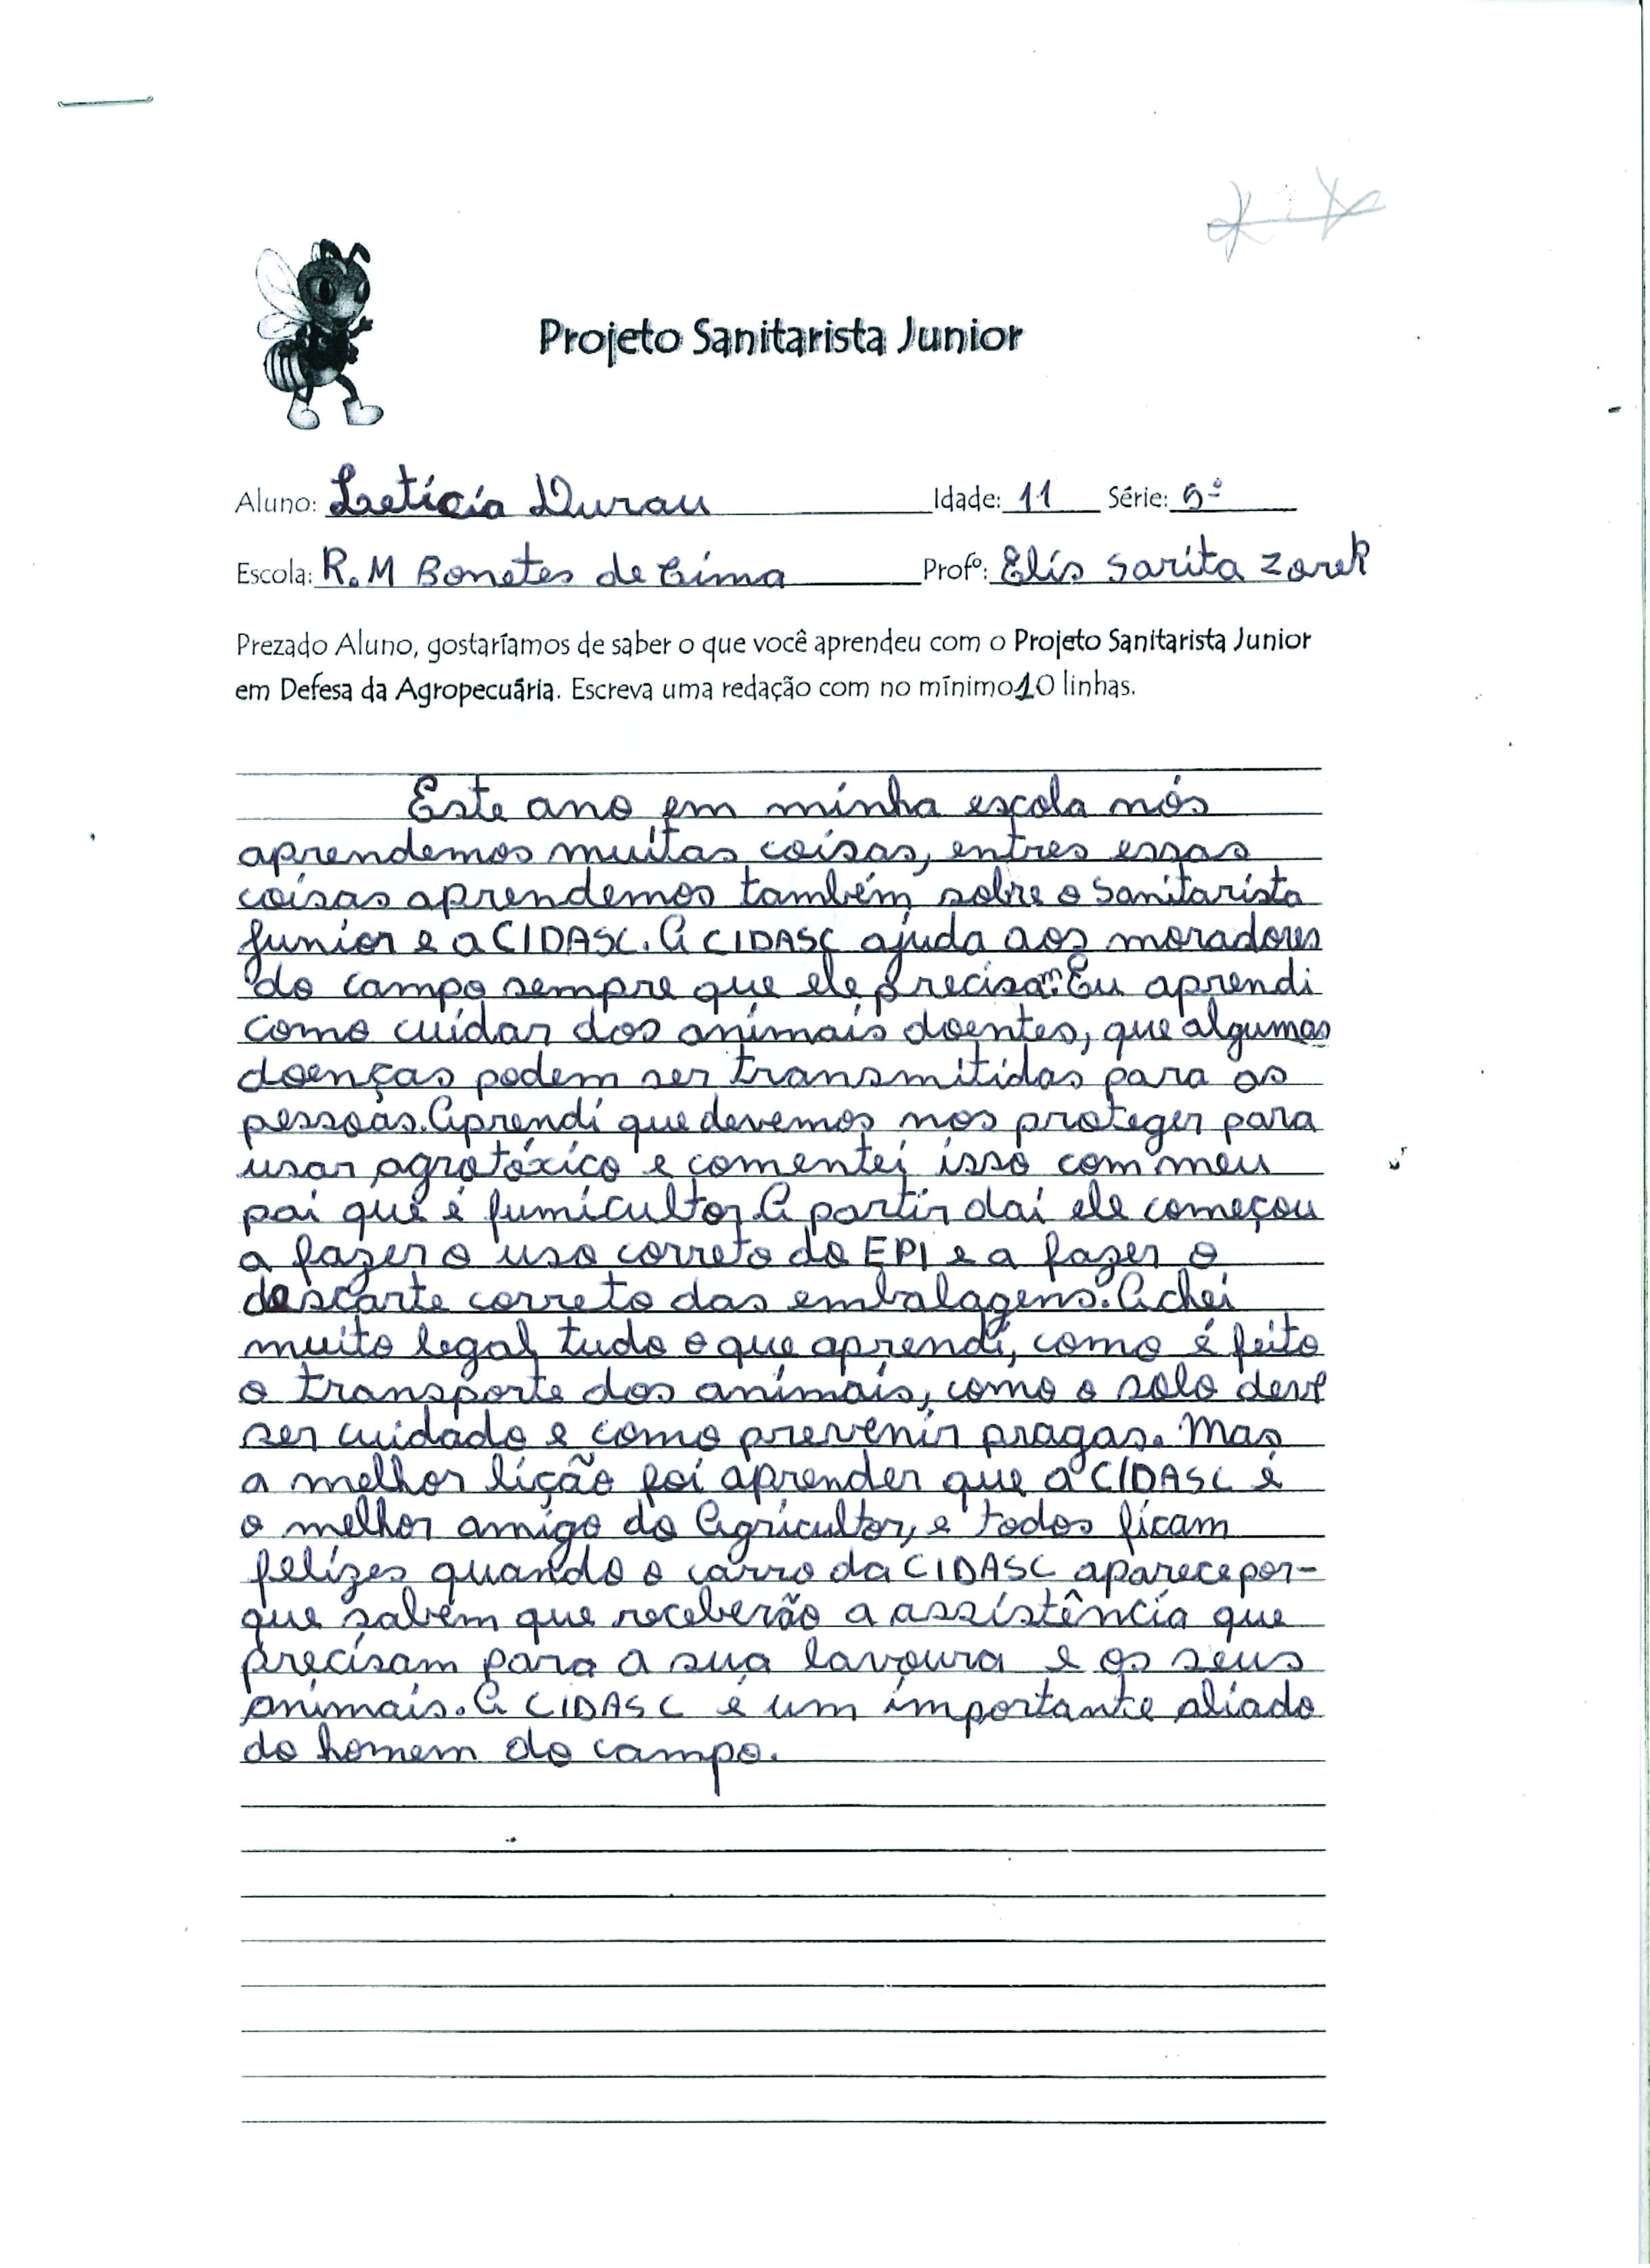 Projeto Sanitarista Junior
Aluno: Letícia Durau Idade: 11 Série: 5º
Escola: R.M Bonetes de Cima Profº: Elis Sarita Zorek
Prezado Aluno, gostaríamos de saber o que você aprendeu com o Projeto Sanitarista Junior
em Defesa da Agropecuária. Escreva uma redação com no mínimo 10 linhas.
Este ano em minha escola nós
aprendemos muitas coisas, entres essas
coisas aprendemos também sobre o Sanitarista
Junior e a CIDASC. A CIDASC ajuda aos moradores
do campo sempre que ele precisam. Eu aprendi
como cuidar dos animais doentes, que algumas
doenças podem ser transmitidas para as
pessoas. Aprendi que devemos nos proteger para
usar agrotóxico e comentei isso com meu
pai que é fumicultor. A partir daí ele começou
a fazer o uso correto do EPI e a fazer o
descarte correto das embalagens. Achei
muito legal tudo o que aprendi, como é feito
o transporte dos animais, como o solo deve
ser cuidado e como prevenir pragas. Mas
a melhor lição foi aprender que a CIDASC é
o melhor amigo do Agricultor, e todos ficam
felizes quando o carro da CIDASC aparece por-
que sabem que receberão a assistência que
precisam para a sua lavoura e os seus
animais. A CIDASC é um importante aliado
do homem do campo.